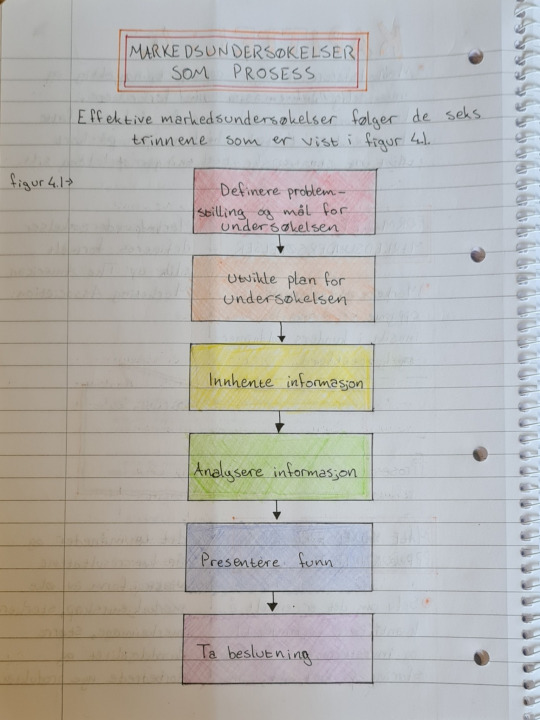 MARKEDSUNDERSØKELSER
SOM PROSESS
Effektive markedsundersøkelser følger de seks
trinnene som er vist i figur 4.1.
figur 4.1→
Definere problem-
stilling og mål for
undersøkelsen
Utvikle plan for
undersøkelsen
Innhente informasjon
Analysere informasjon
Presentere funn
Ta beslutning